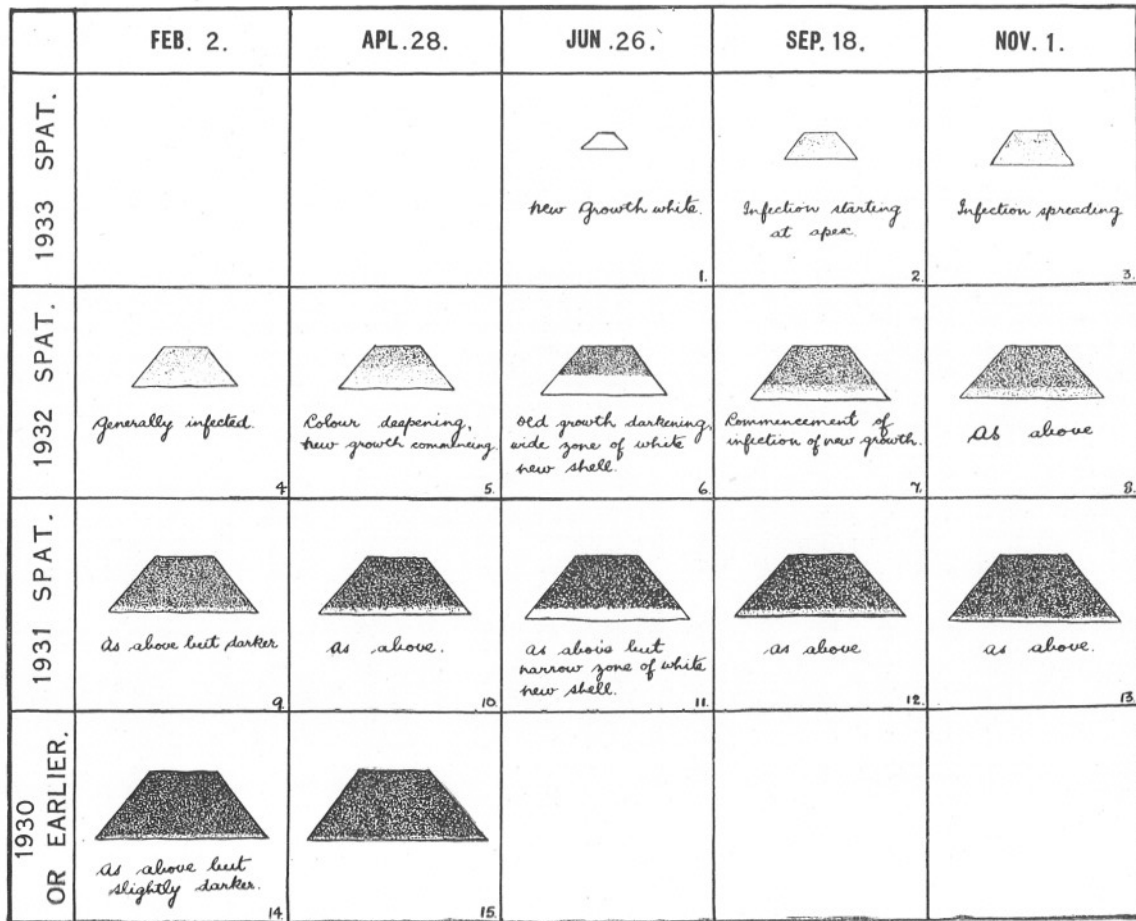 FEB. 2.
APL. 28.
JUN. 26.
SEP. 18.
NOV. 1.
1933 SPAT.
New growth white.
1.
Infection starting
at apex.
2.
Infection spreading
3.
1932 SPAT.
Generally infected.
4.
Colour deepening,
new growth commencing.
5.
Old growth darkening,
wide zone of white
new shell.
6.
Commencement of
infection of new growth.
7.
As above
8.
1931 SPAT.
As above but darker
9.
As above.
10.
As above but
narrow zone of white
new shell.
11.
As above
12.
As above.
13.
1930
OR EARLIER.
As above but
slightly darker.
14.
15.